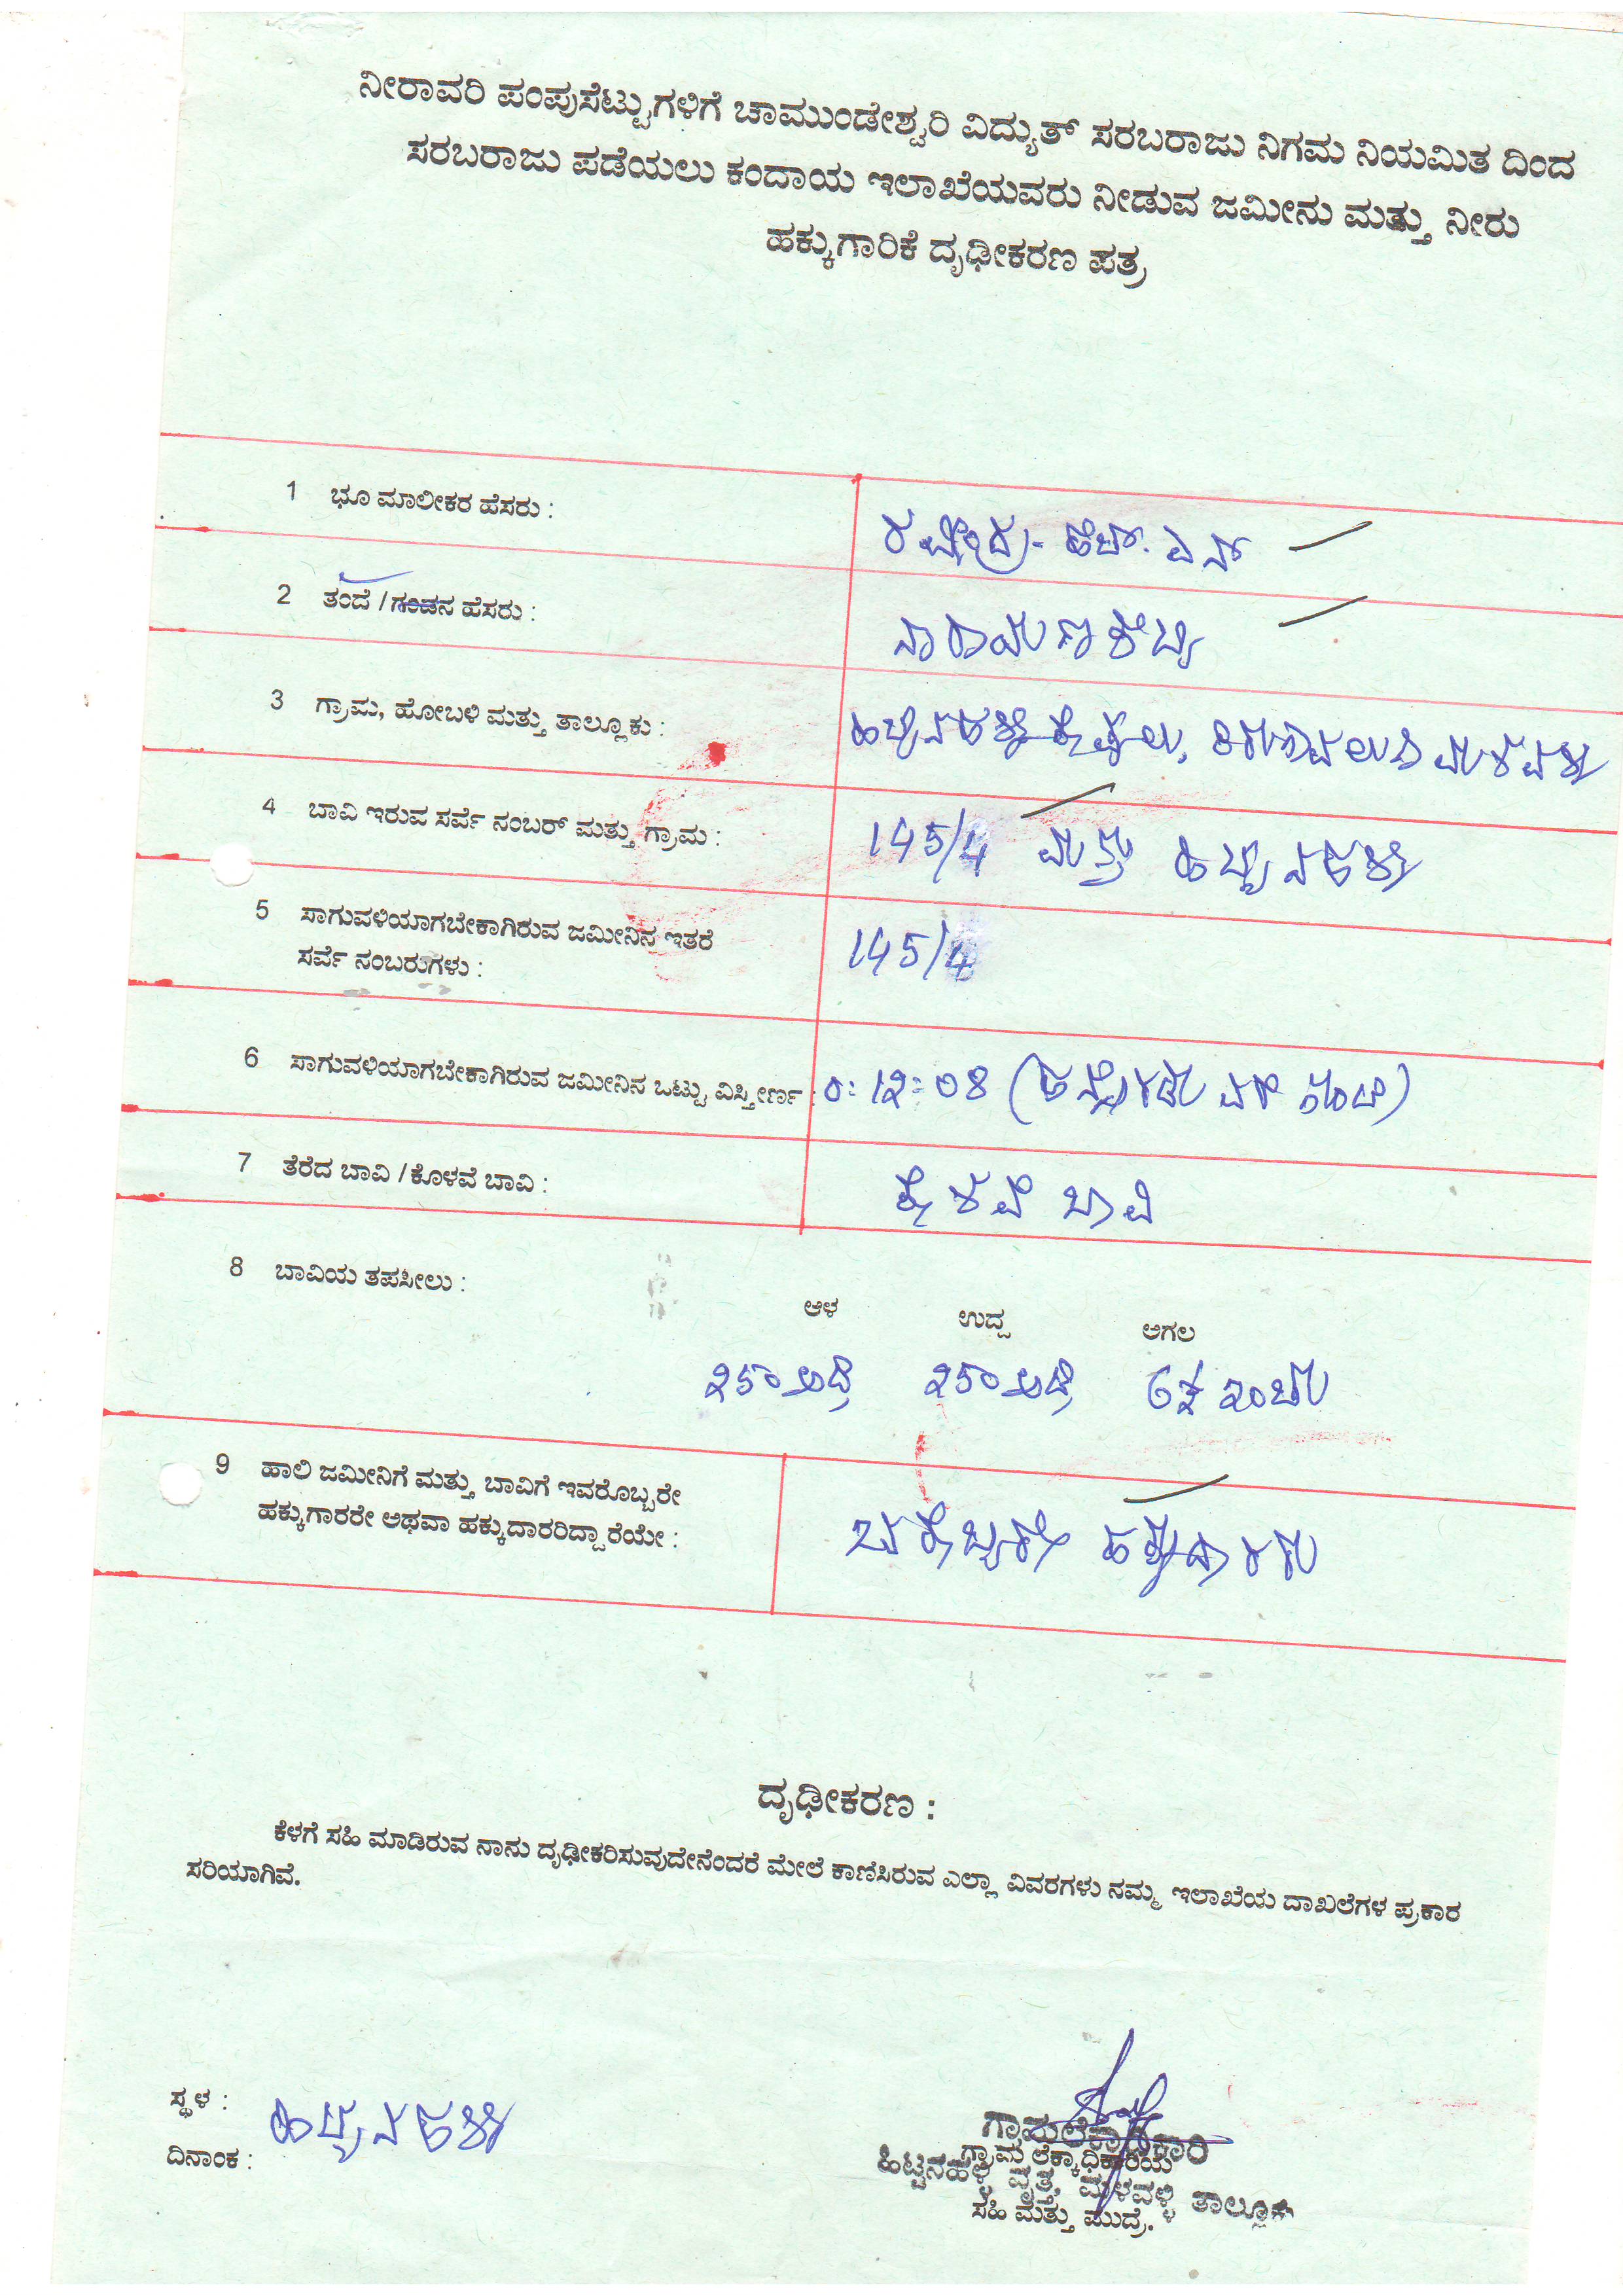 ನೀರಾವರಿ ಪಂಪುಸೆಟ್ಟುಗಳಿಗೆ ಚಾಮುಂಡೇಶ್ವರಿ ವಿದ್ಯುತ್ ಸರಬರಾಜು ನಿಗಮ ನಿಯಮಿತ ದಿಂದ
ಸರಬರಾಜು ಪಡೆಯಲು ಕಂದಾಯ ಇಲಾಖೆಯವರು ನೀಡುವ ಜಮೀನು ಮತ್ತು ನೀರು
ಹಕ್ಕುಗಾರಿಕೆ ದೃಢೀಕರಣ ಪತ್ರ
1 ಭೂ ಮಾಲೀಕರ ಹೆಸರು : ರವೀಂದ್ರ. ಹೆಚ್. ಎನ್
2 ತಂದೆ / ಗಂಡನ ಹೆಸರು : ನಾರಾಯಣಶೆಟ್ಟಿ
3 ಗ್ರಾಮ, ಹೋಬಳಿ ಮತ್ತು ತಾಲ್ಲೂಕು : ಹಿಟ್ಟನಹಳ್ಳಿ ಕೊಪ್ಪಲು, ಕಿರುಗಾವಲು ಮಳವಳ್ಳಿ
4 ಬಾವಿ ಇರುವ ಸರ್ವೆ ನಂಬರ್ ಮತ್ತು ಗ್ರಾಮ : 145/4 ಮತ್ತು ಹಿಟ್ಟನಹಳ್ಳಿ
5 ಸಾಗುವಳಿಯಾಗಬೇಕಾಗಿರುವ ಜಮೀನಿನ ಇತರೆ
ಸರ್ವೆ ನಂಬರುಗಳು : 145/4
6 ಸಾಗುವಳಿಯಾಗಬೇಕಾಗಿರುವ ಜಮೀನಿನ ಒಟ್ಟು ವಿಸ್ತೀರ್ಣ : 0:12:08
7 ತೆರೆದ ಬಾವಿ / ಕೊಳವೆ ಬಾವಿ : ಕೊಳವೆ ಬಾವಿ
8 ಬಾವಿಯ ತಪಸೀಲು :
ಆಳ ಉದ್ದ ಅಗಲ
250 ಅಡಿ 250 ಅಡಿ 6½ ಇಂಚು
9 ಹಾಲಿ ಜಮೀನಿಗೆ ಮತ್ತು ಬಾವಿಗೆ ಇವರೊಬ್ಬರೇ
ಹಕ್ಕುಗಾರರೇ ಅಥವಾ ಹಕ್ಕುದಾರರಿದ್ದಾರೆಯೇ : ಒಬ್ಬರೇ ಹಕ್ಕುದಾರರು
ದೃಢೀಕರಣ :
ಕೆಳಗೆ ಸಹಿ ಮಾಡಿರುವ ನಾನು ದೃಢೀಕರಿಸುವುದೇನೆಂದರೆ ಮೇಲೆ ಕಾಣಿಸಿರುವ ಎಲ್ಲಾ ವಿವರಗಳು ನಮ್ಮ ಇಲಾಖೆಯ ದಾಖಲೆಗಳ ಪ್ರಕಾರ
ಸರಿಯಾಗಿವೆ.
ಸ್ಥಳ : ಹಿಟ್ಟನಹಳ್ಳಿ
ದಿನಾಂಕ :
ಗ್ರಾಮಲೆಕ್ಕಾಧಿಕಾರಿ
ಗ್ರಾಮ ಲೆಕ್ಕಾಧಿಕಾರಿಯ
ಹಿಟ್ಟನಹಳ್ಳಿ ವೃತ್ತ, ಮಳವಳ್ಳಿ ತಾಲ್ಲೂಕು
ಸಹಿ ಮತ್ತು ಮುದ್ರೆ.